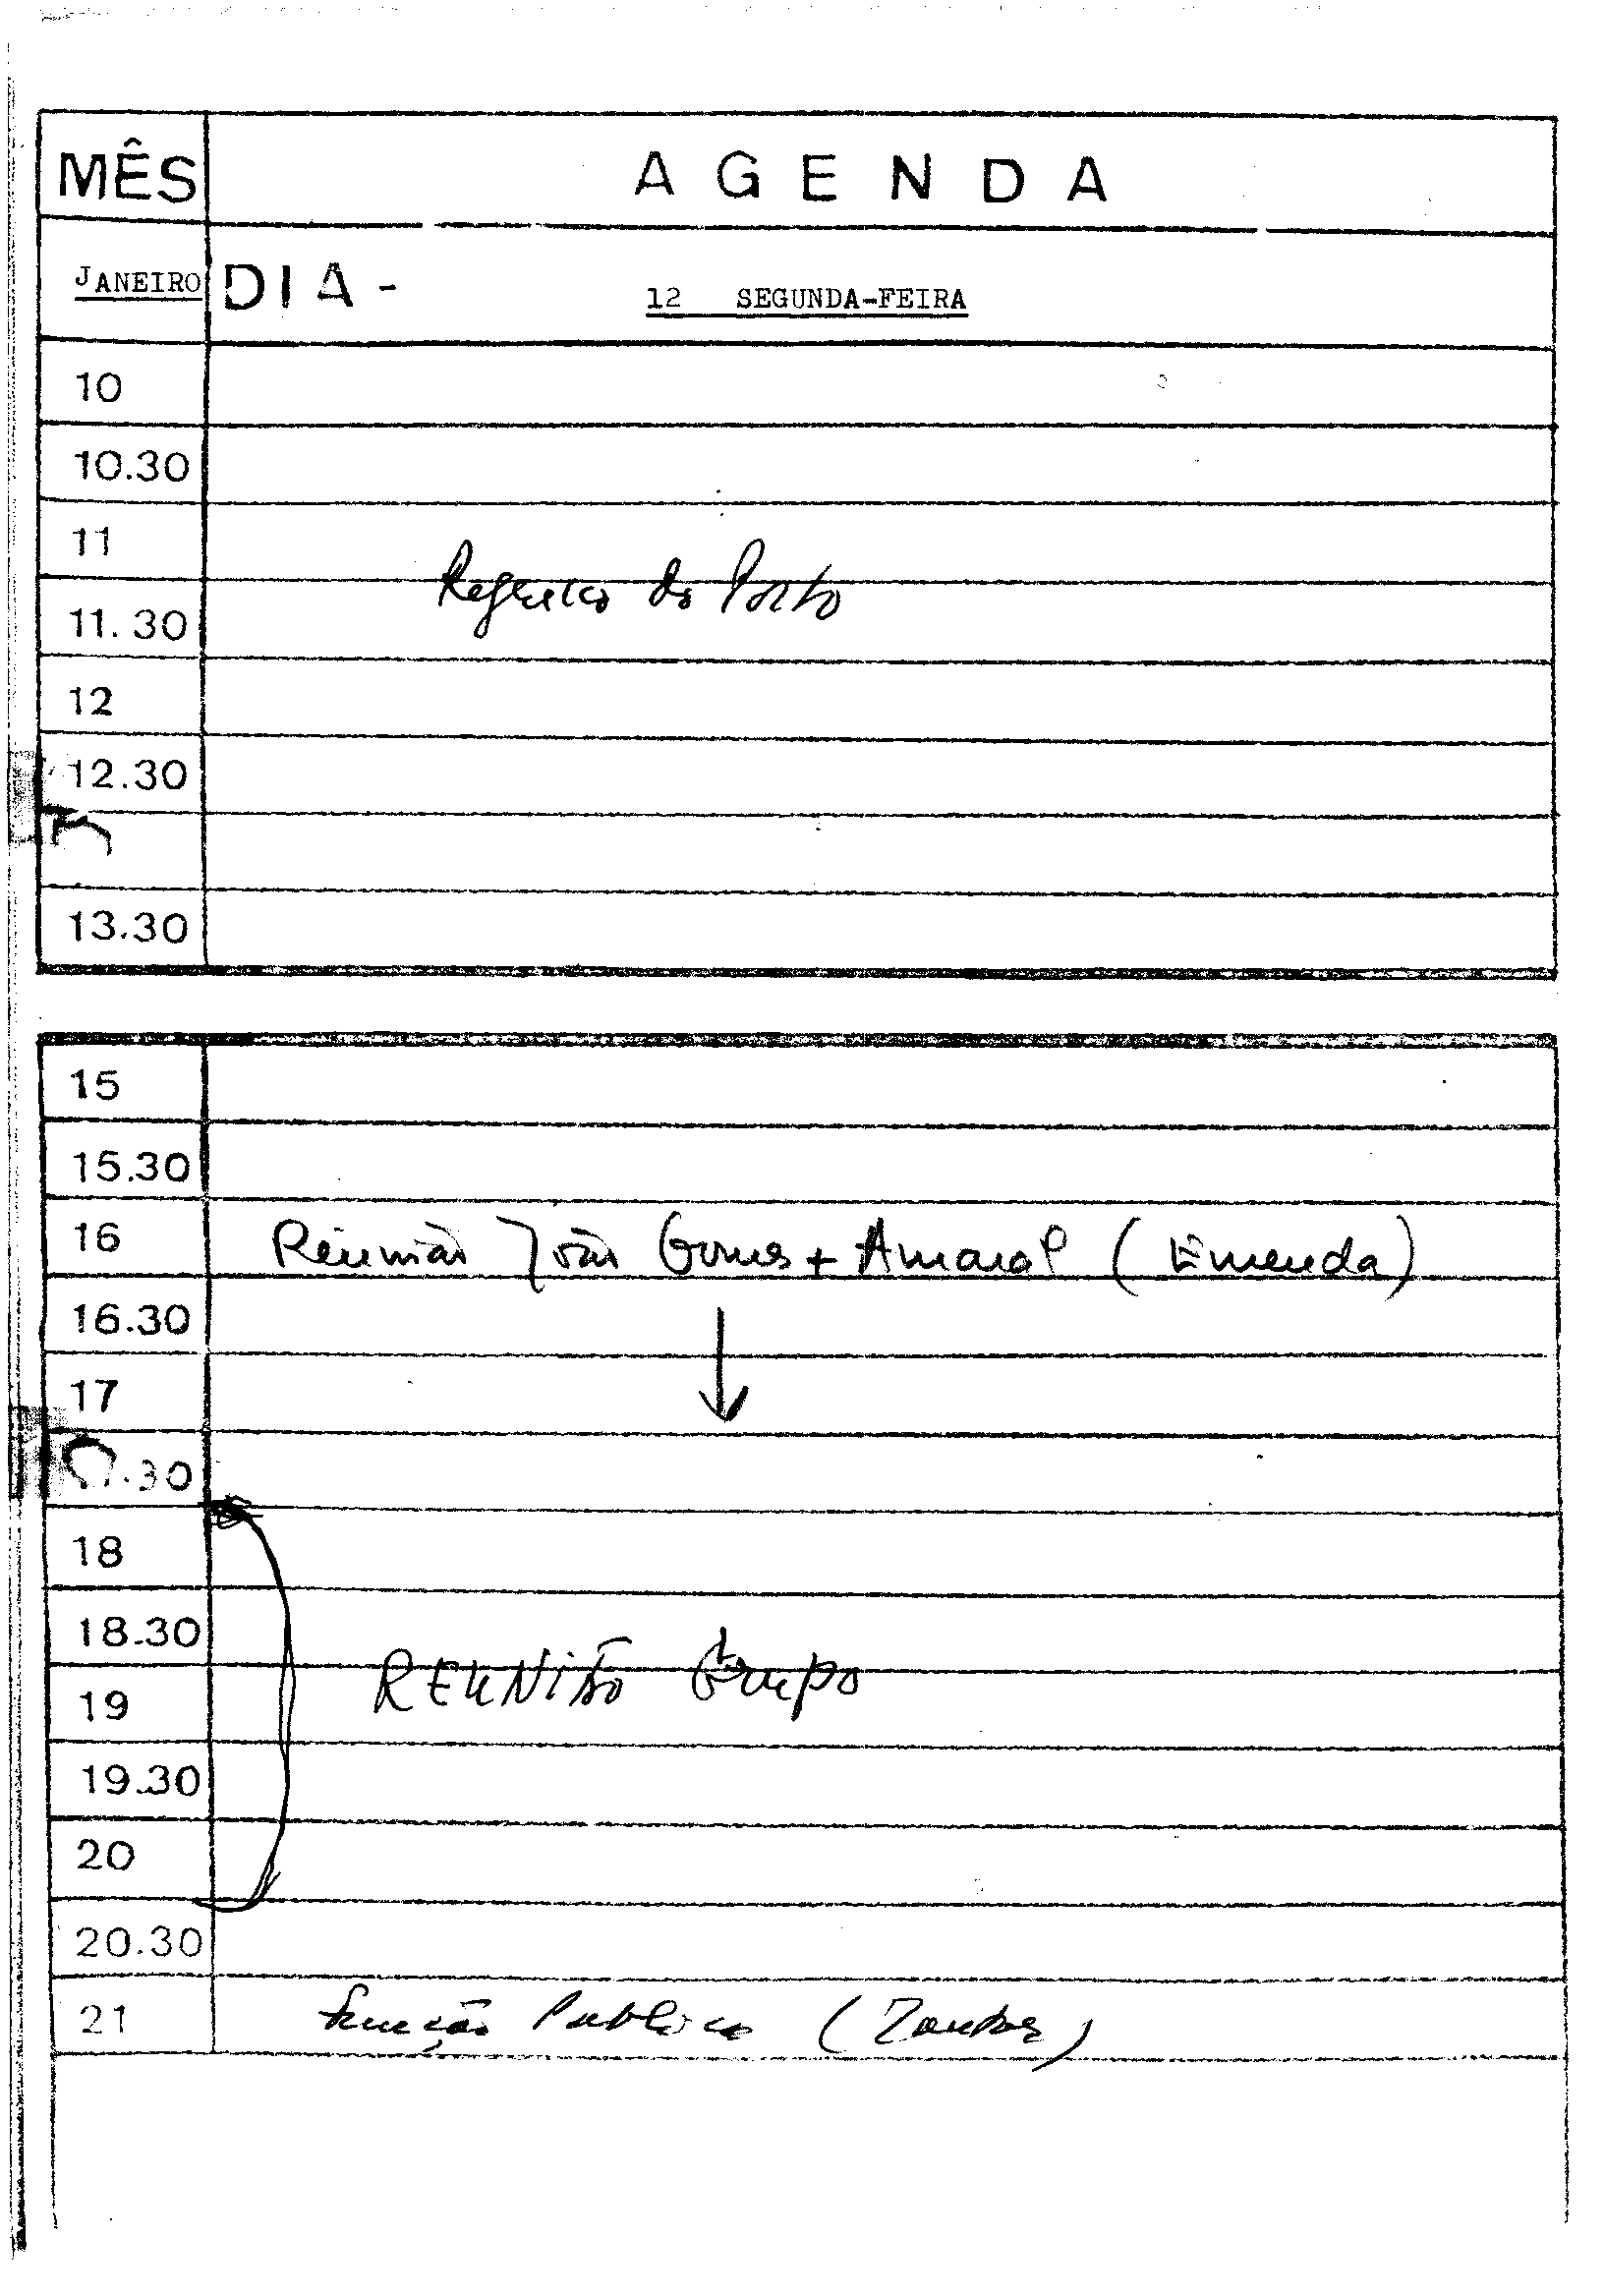 MÊS AGENDA
JANEIRO DIA - 12 SEGUNDA-FEIRA
10
10.30
11
Regresso do Porto
11.30
12
12.30
13.30
15
15.30
16 Reunião João Gomes + Amaral (Emenda)
16.30
17
.30
18
18.30
REUNIÃO Grupo
19
19.30
20
20.30
21 Função Publica (